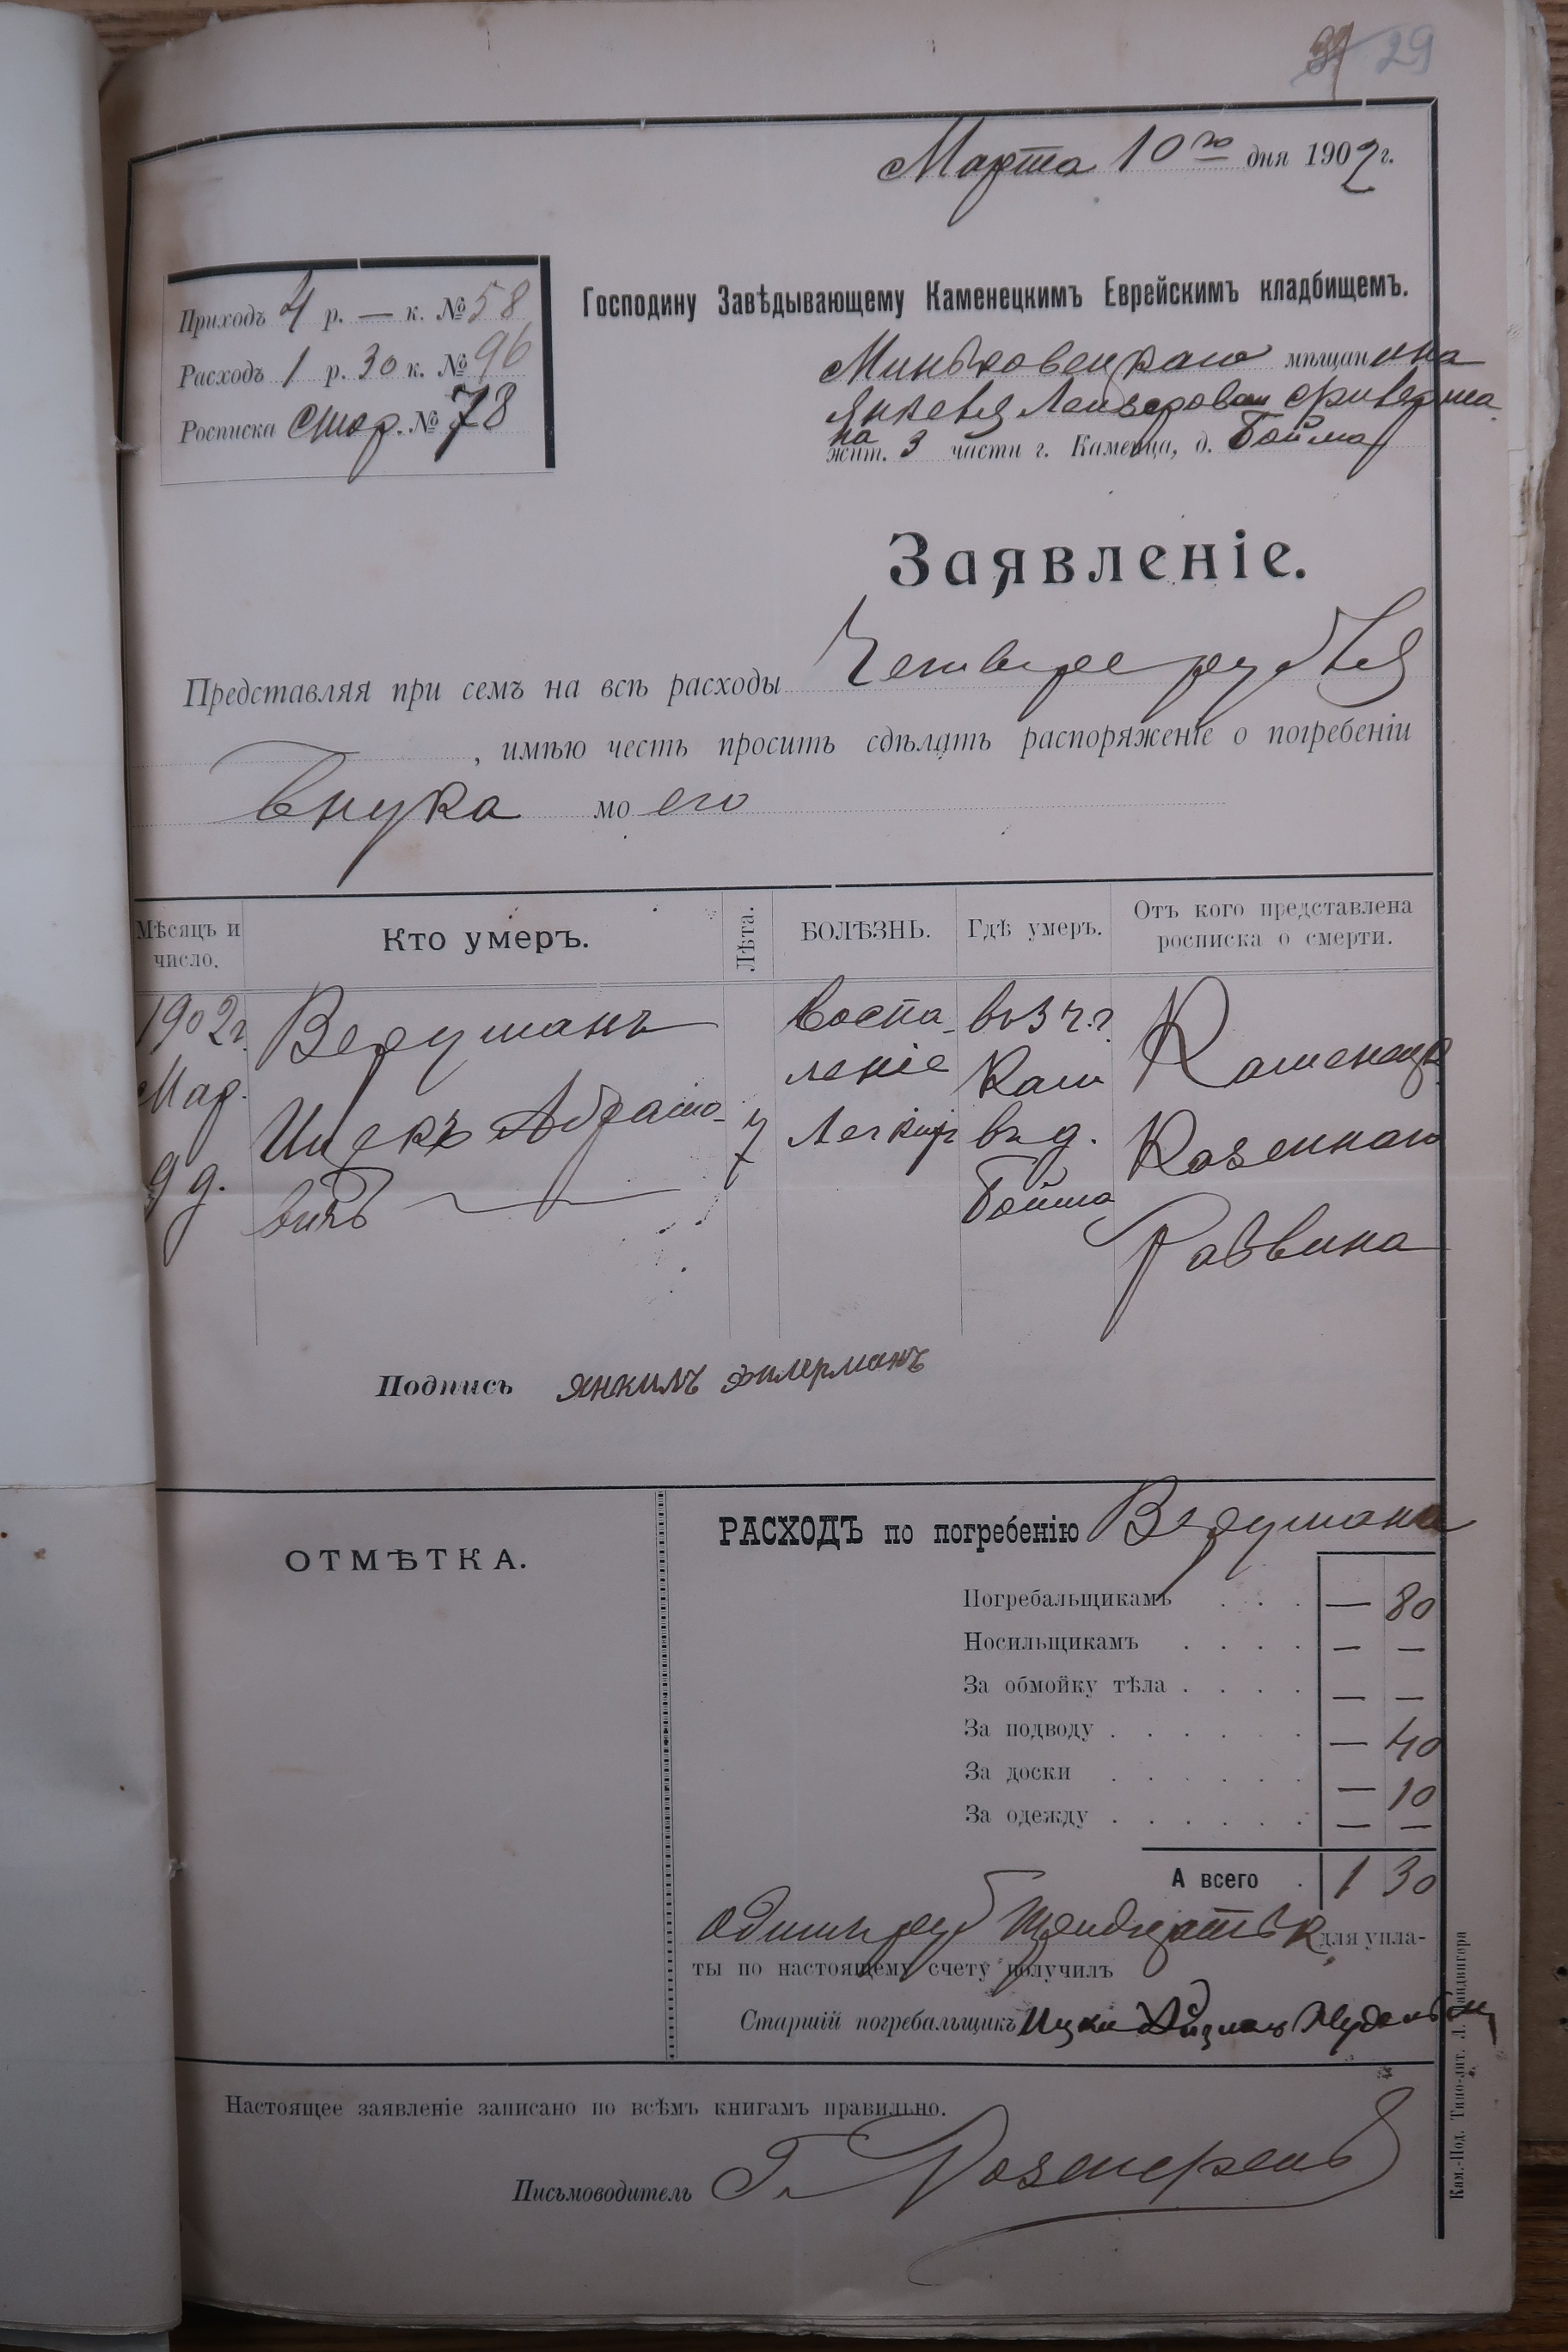 29
Марта 10го дня 1902 г.
Приходъ 4 р. — к. № 58
Расходъ 1 р. 30 к. № 96
Росписка стор. № 78
Господину Завѣдывающему Каменецкимъ Еврейскимъ кладбищемъ.
Миньковецкаго мѣщанина
Янкеля
жит. 3 части г. Каменца, д. Бойма
Заявленіе.
Представляя при семъ на всѣ расходы Четыре рубля
, имѣю честь просить сдѣлать распоряженіе о погребеніи
внука моего
Мѣсяцъ и число. Кто умеръ. Лѣта. БОЛѢЗНЬ. Гдѣ умеръ. Отъ кого представлена росписка о смерти.
1902 г. Воспа- въ 3 ч. г.
Мар. леніе Кам Каменецк
9 д. Ицекъ Абрамо- Легкихъ въ д. Казеннаго
вичъ Бойма Раввина
Подпись Янкилъ Филерманъ
ОТМѢТКА.
РАСХОДЪ по погребенію
Погребальщикамъ . . . — 80
Носильщикамъ . . . . — —
За обмойку тѣла . . . . — —
За подводу . . . . . . — 40
За доски . . . . . . — 10
За одежду . . . . . . — —
А всего . 1 30
Одинъ руб тридцать к. для упла-
ты по настоящему счету получилъ
Старшій погребальщикъ Ицко
Настоящее заявленіе записано по всѣмъ книгамъ правильно.
Письмоводитель
Кам.-Под. Типо-лит. Л.